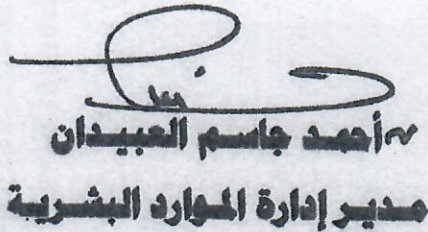 أحمد جاسم العبيدان
مدير إدارة الموارد البشرية